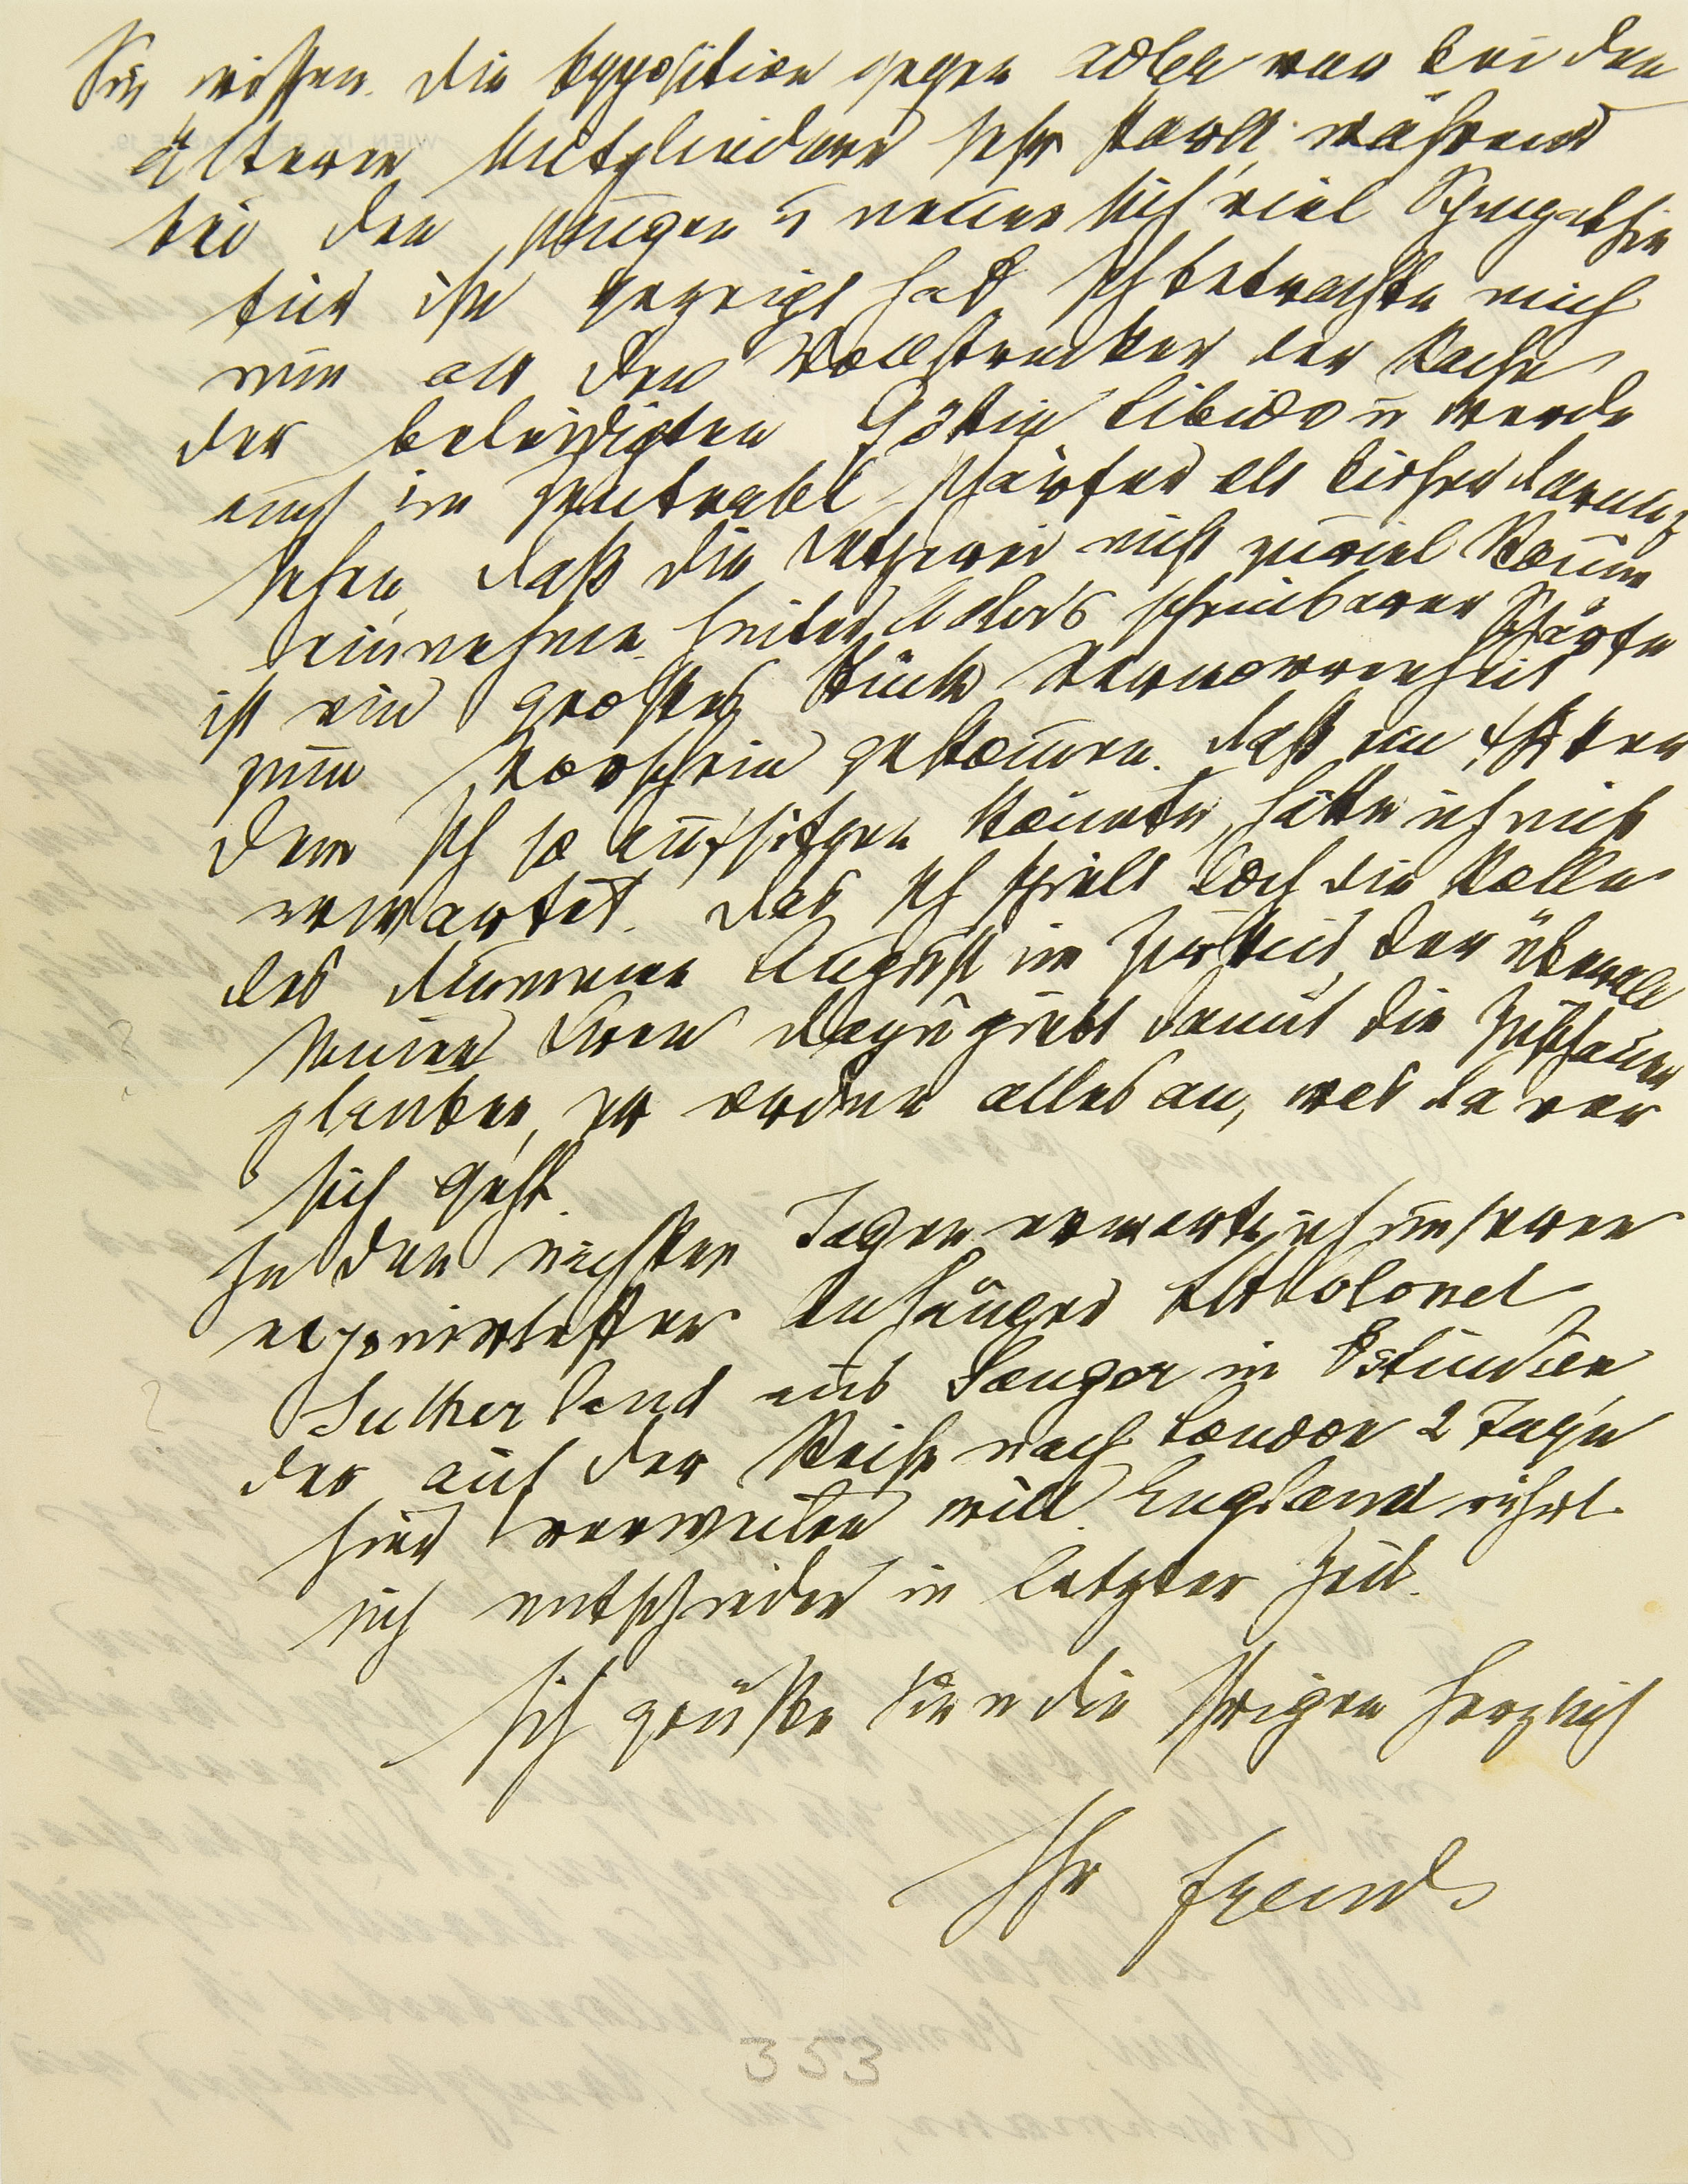 Sie wissen. Die Opposition gegen Adler war bei den
älteren Mitgliedern sehr stark, während
bei den jungen u neuen sich viel Sympathie
für ihn gezeigt hat. Ich betrachte mich
nun als den Vollstrecker der Rache
der beleidigten Göttin Libido u werde
auch im Zentralbl schärfer als bisher darauf
sehen, daß die Ketzerei nicht zuviel Raum
einnehme. Hinter Adler's scheinbarer Schärfe
ist ein großes Stück Verworrenheit
zum Vorschein gekommen. Daß ein ΨΑtiker
dem Ich so aufsitzen könnte, hätte ich nicht
erwartet. Das Ich spielt doch die Rolle
des dummen August im Zirkus, der überall
seinen Kren dazugiebt, damit die Zuschauer
glauben, er ordne alles an, was da vor
sich geht.
In den nächsten Tagen erwarte ich unseren
exponirtesten Anhänger Lt Colonel
Sutherland aus Saugor in Ostindien
der auf der Reise nach London 2 Tage
hier verweilen will. England rührt
sich entschieden in letzter Zeit.
Ich grüße Sie u die Ihrigen herzlich
Ihr Freud
353